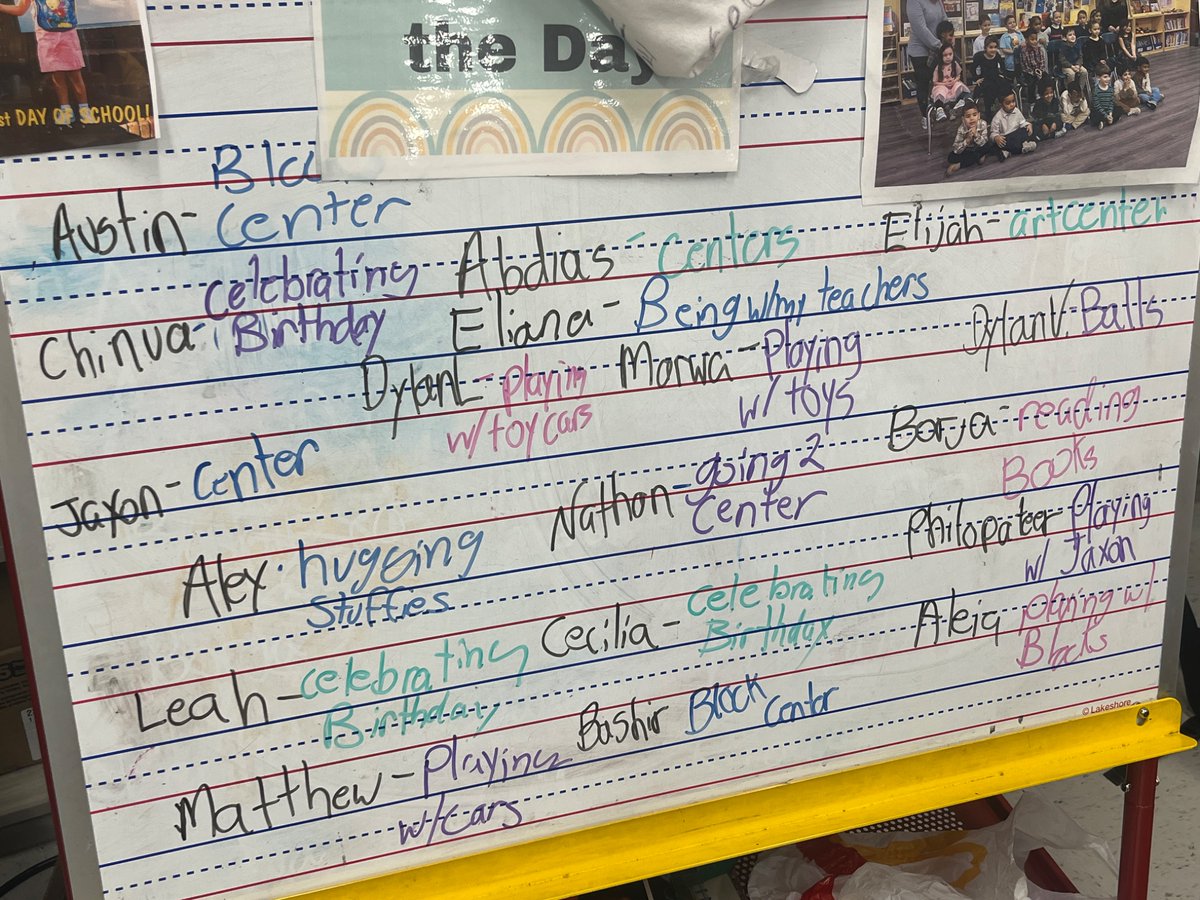 st DAY OF SCHOOL!
the Day
Austin- Center
Abdias - centers
Elijah- artcenter
Chinua- celebrating
Birthday
Eliana- Being w/my teachers
DylanL- playing
w/toy cars
Morwa - Playing
w/ toys
DylanV. Balls
Jaxon- center
Nathan- going 2
Center
Borja- reading
Books
Alex. hugging
stuffies
Philopateer- Playing
w/ Jaxon
Leah- celebrating
Birthday
Cecilia- celebrating
Birthday
playing w/
Blocks
Matthew- Playing
w/cars
Bashir Block Center
© Lakeshore